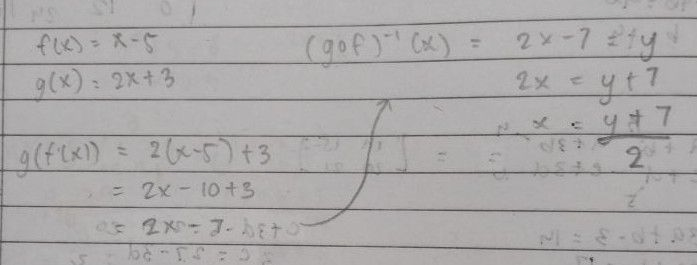 f(x) = x-5
g(x) = 2x+3
g(f(x)) = 2(x-5)+3
= 2x-10+3
= 2x-7
(gof)⁻¹(x) = 2x-7 = y
2x = y+7
x = y+7
2